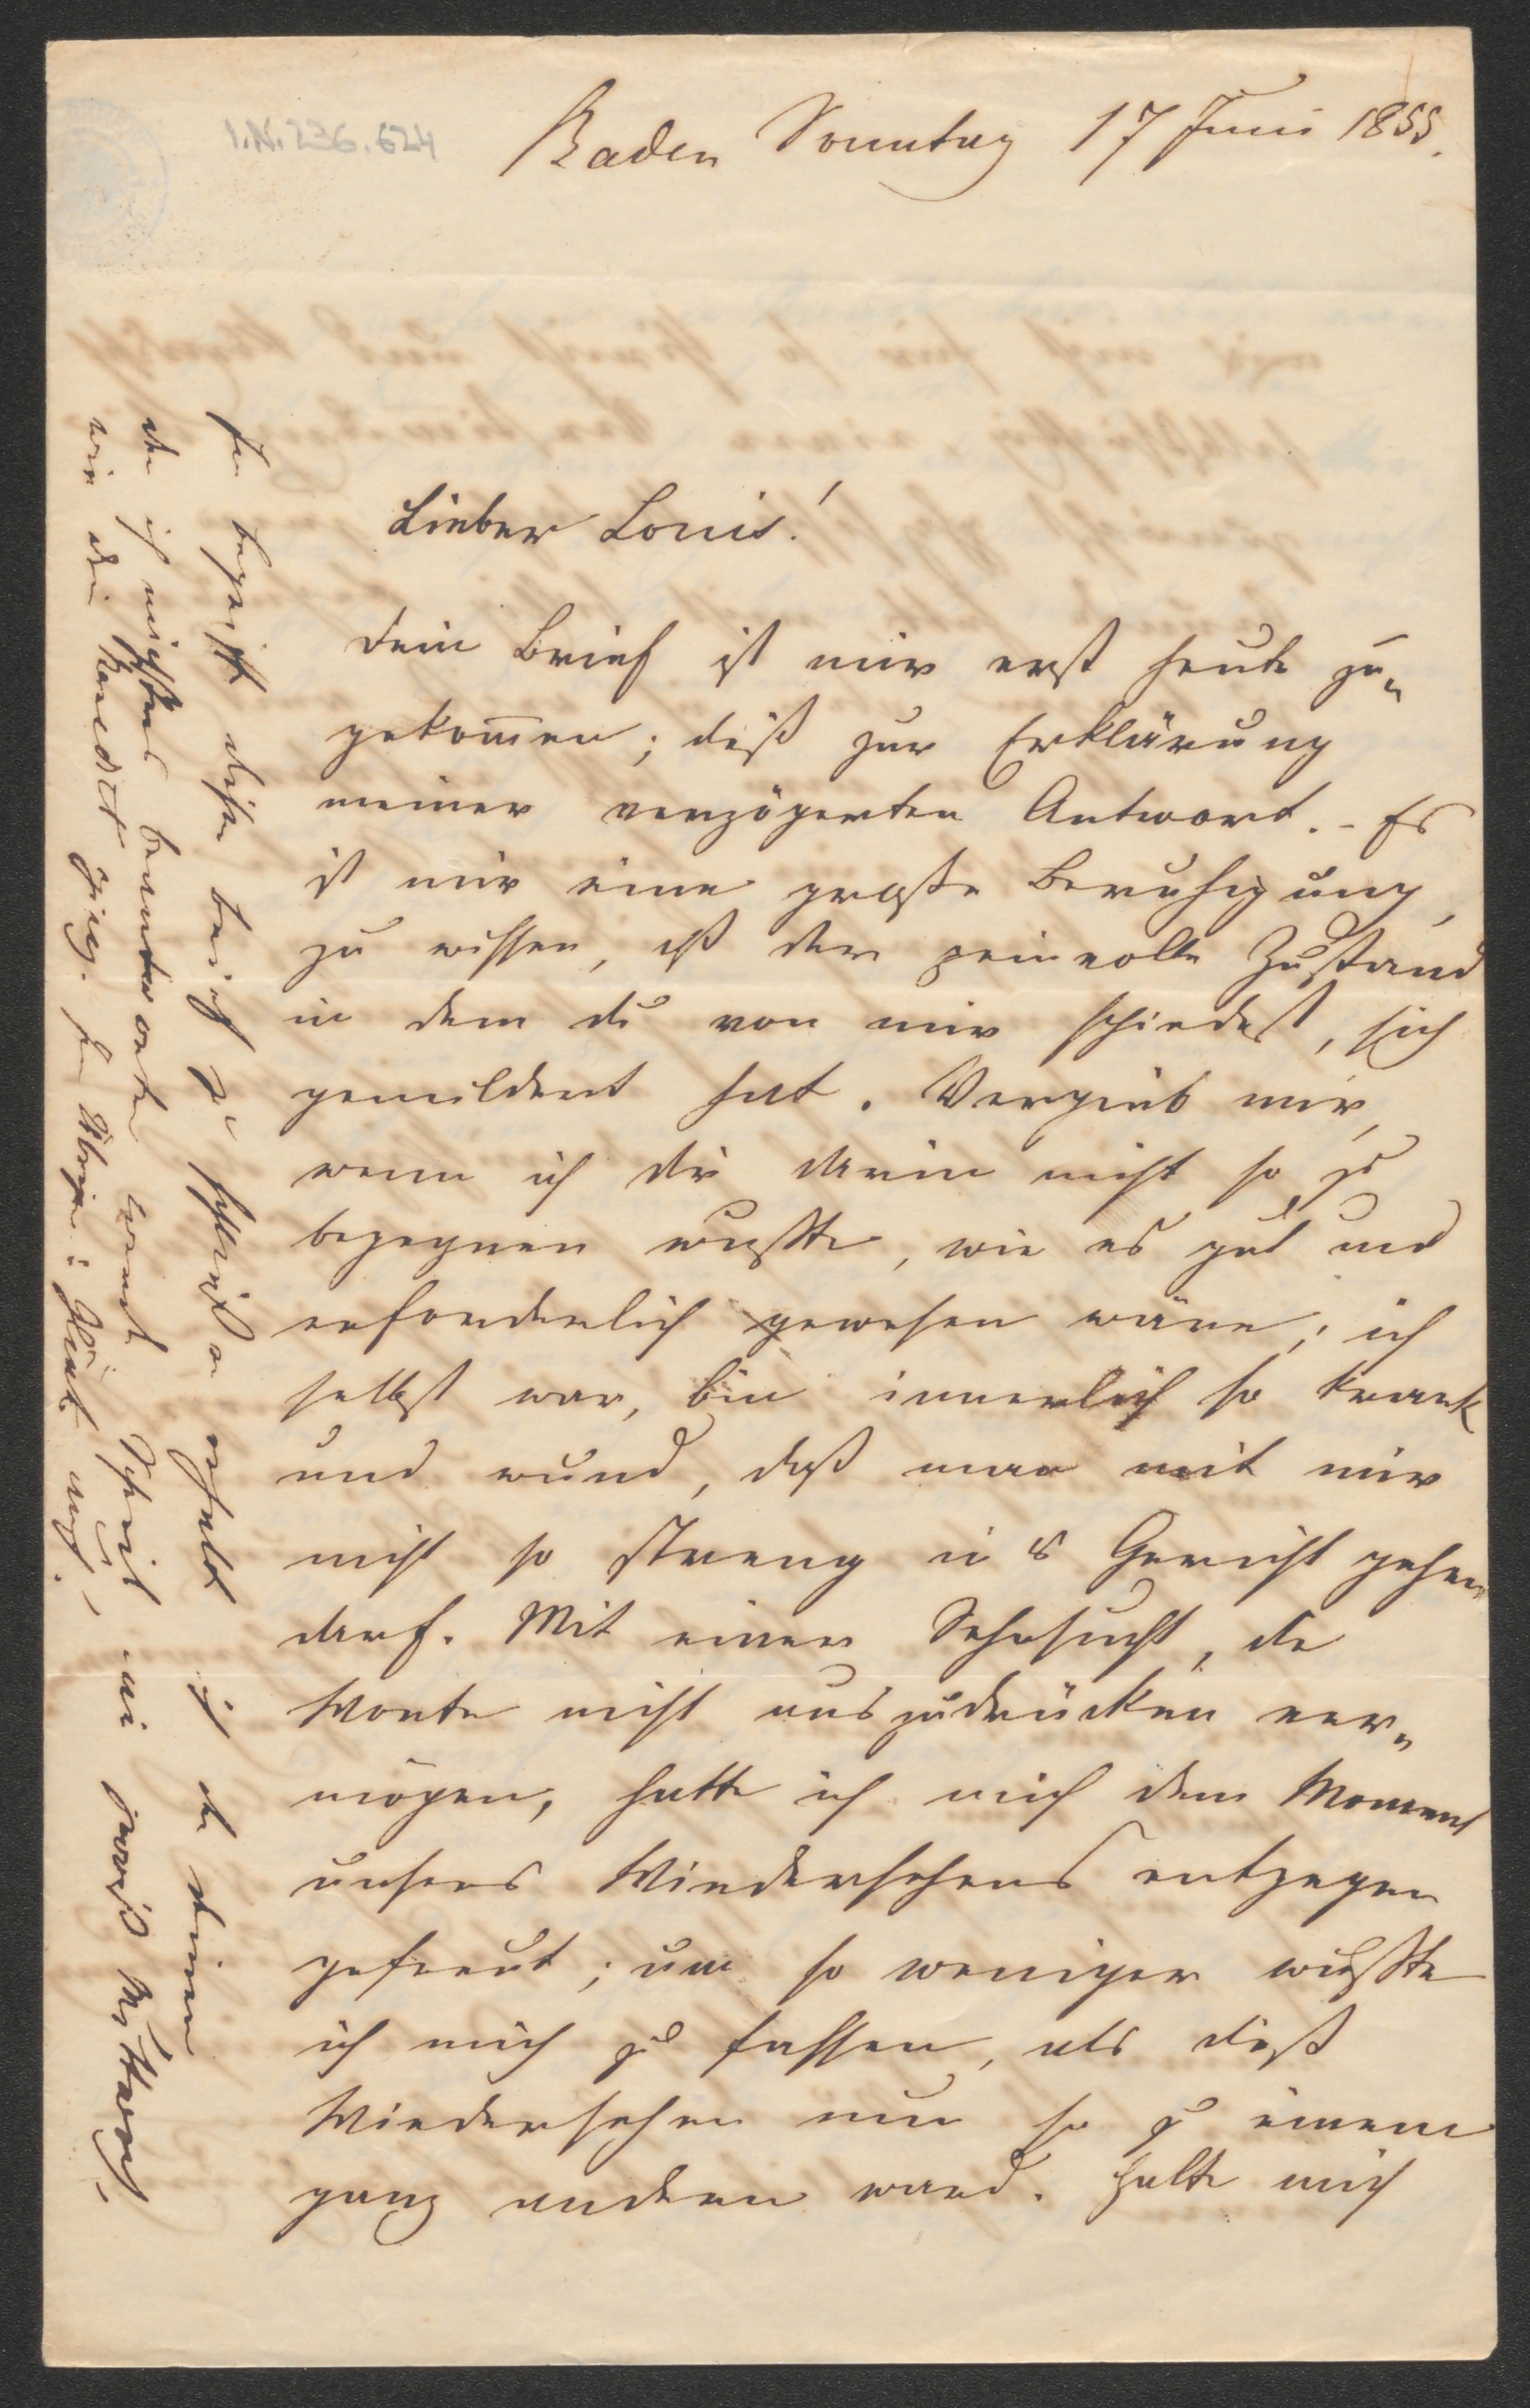 I.N. 236.624
Baden Sonntag 17 Juni 1855.
Lieber Louis!
Dein Brief ist mir erst heute zu-
gekommen; diß zur Erklärung
meiner verzögerten Antwort. - Es
ist mir eine große Beruhigung,
zu wissen, daß der peinvolle Zustand
in dem du von mir schiedest, sich
gemildert hat. Vergieb mir,
wenn ich dir darin nicht so zu
begegnen wußte, wie es gut und
erforderlich gewesen wäre; ich
selbst war, bin innerlich so krank
und wund, daß man mit mir
nicht so streng in's Gericht gehen
darf. Mit einer Sehnsucht, die
Worte nicht auszudrücken ver-
mögen, hatte ich mich dem Moment
unseres Wiedersehens entgegen
gefreut; um so weniger wußte
ich mich zu fassen, als dieß
Wiedersehen nun so zu einem
ganz andern ward. Halte mich
Im Begriff diesen Brief zu schließen erhalte ich den deinen
den ich nächstens beantworten werde. Schreib mir gewiß Mittwoch,
wie die ging. Im Übrigen: Glück auf! -